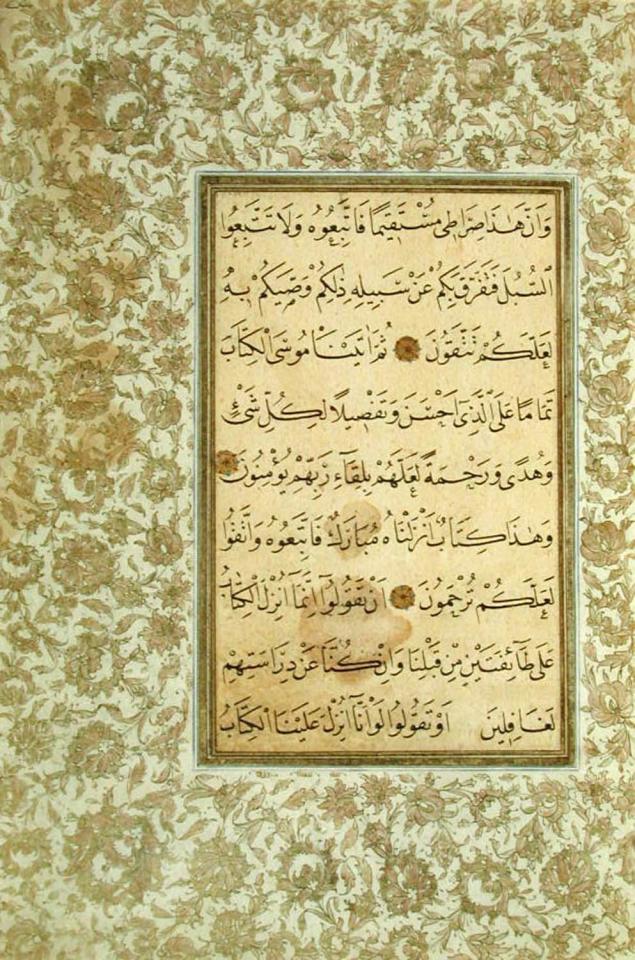 وَاَنَّ هٰذَا صِرَاطِى مُسْتَقِيمًا فَاتَّبِعُوهُ وَلَا تَتَّبِعُوا
السُّبُلَ فَتَفَرَّقَ بِكُمْ عَنْ سَبِيلِهِ ذٰلِكُمْ وَصّٰيكُمْ بِهِ
لَعَلَّكُمْ تَتَّقُونَ ثُمَّ اٰتَيْنَا مُوسَى الْكِتَابَ
تَمَامًا عَلَى الَّذِىٓ اَحْسَنَ وَتَفْصِيلًا لِكُلِّ شَىْءٍ
وَهُدًى وَرَحْمَةً لَعَلَّهُمْ بِلِقَآءِ رَبِّهِمْ يُؤْمِنُونَ
وَهٰذَا كِتَابٌ اَنْزَلْنَاهُ مُبَارَكٌ فَاتَّبِعُوهُ وَاتَّقُوا
لَعَلَّكُمْ تُرْحَمُونَ اَنْ تَقُولُوٓا اِنَّمَآ اُنْزِلَ الْكِتَابُ
عَلٰى طَآئِفَتَيْنِ مِنْ قَبْلِنَا وَاِنْ كُنَّا عَنْ دِرَاسَتِهِمْ
لَغَافِلِينَ اَوْ تَقُولُوا لَوْ اَنَّآ اُنْزِلَ عَلَيْنَا الْكِتَابُ